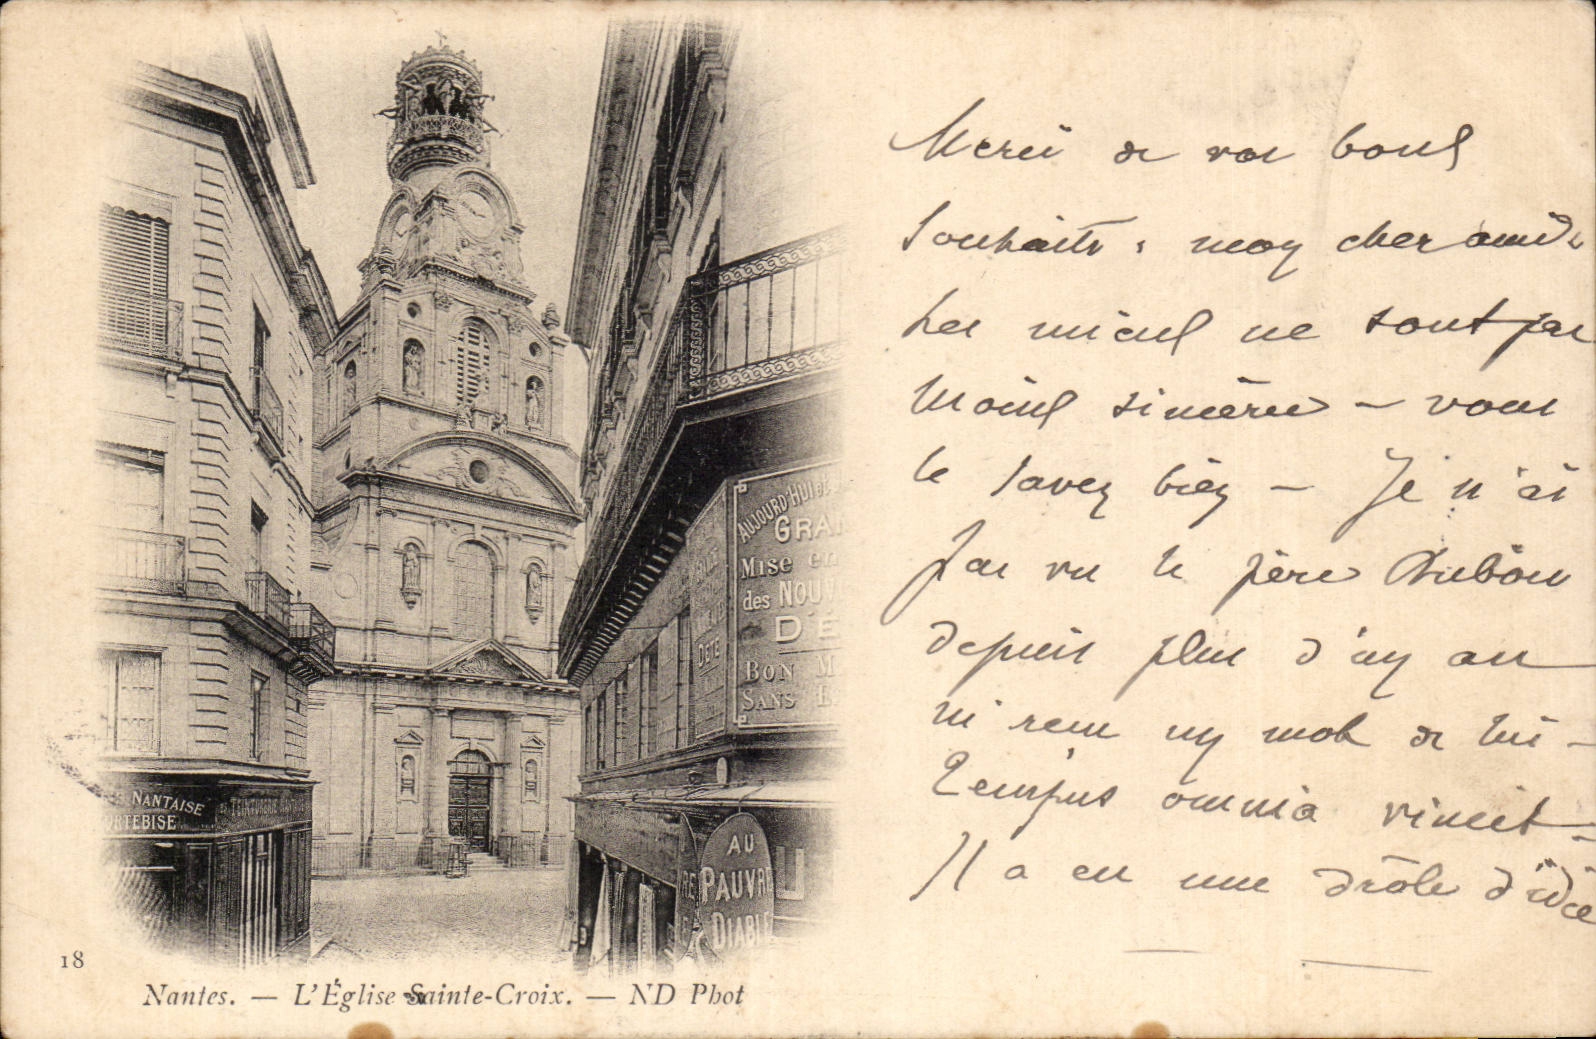 NANTAISE
TEINTURERIE
AUJOURD'HUI
GRA
MISE en
des NOUV
D'É
BON M
SANS
AU
PAUVRE
DIABLE
18
Nantes. — L'Église Sainte-Croix. — ND Phot
Merci de vos bons
souhaits, mon cher ami.
Les miens ne sont pas
moins sincères — vous
le savez bien — Je n'ai
pas vu le père
depuis plus d'un an
ni reçu un mot de lui —
Tempus omnia vincit —
Il a eu une drôle d'idée